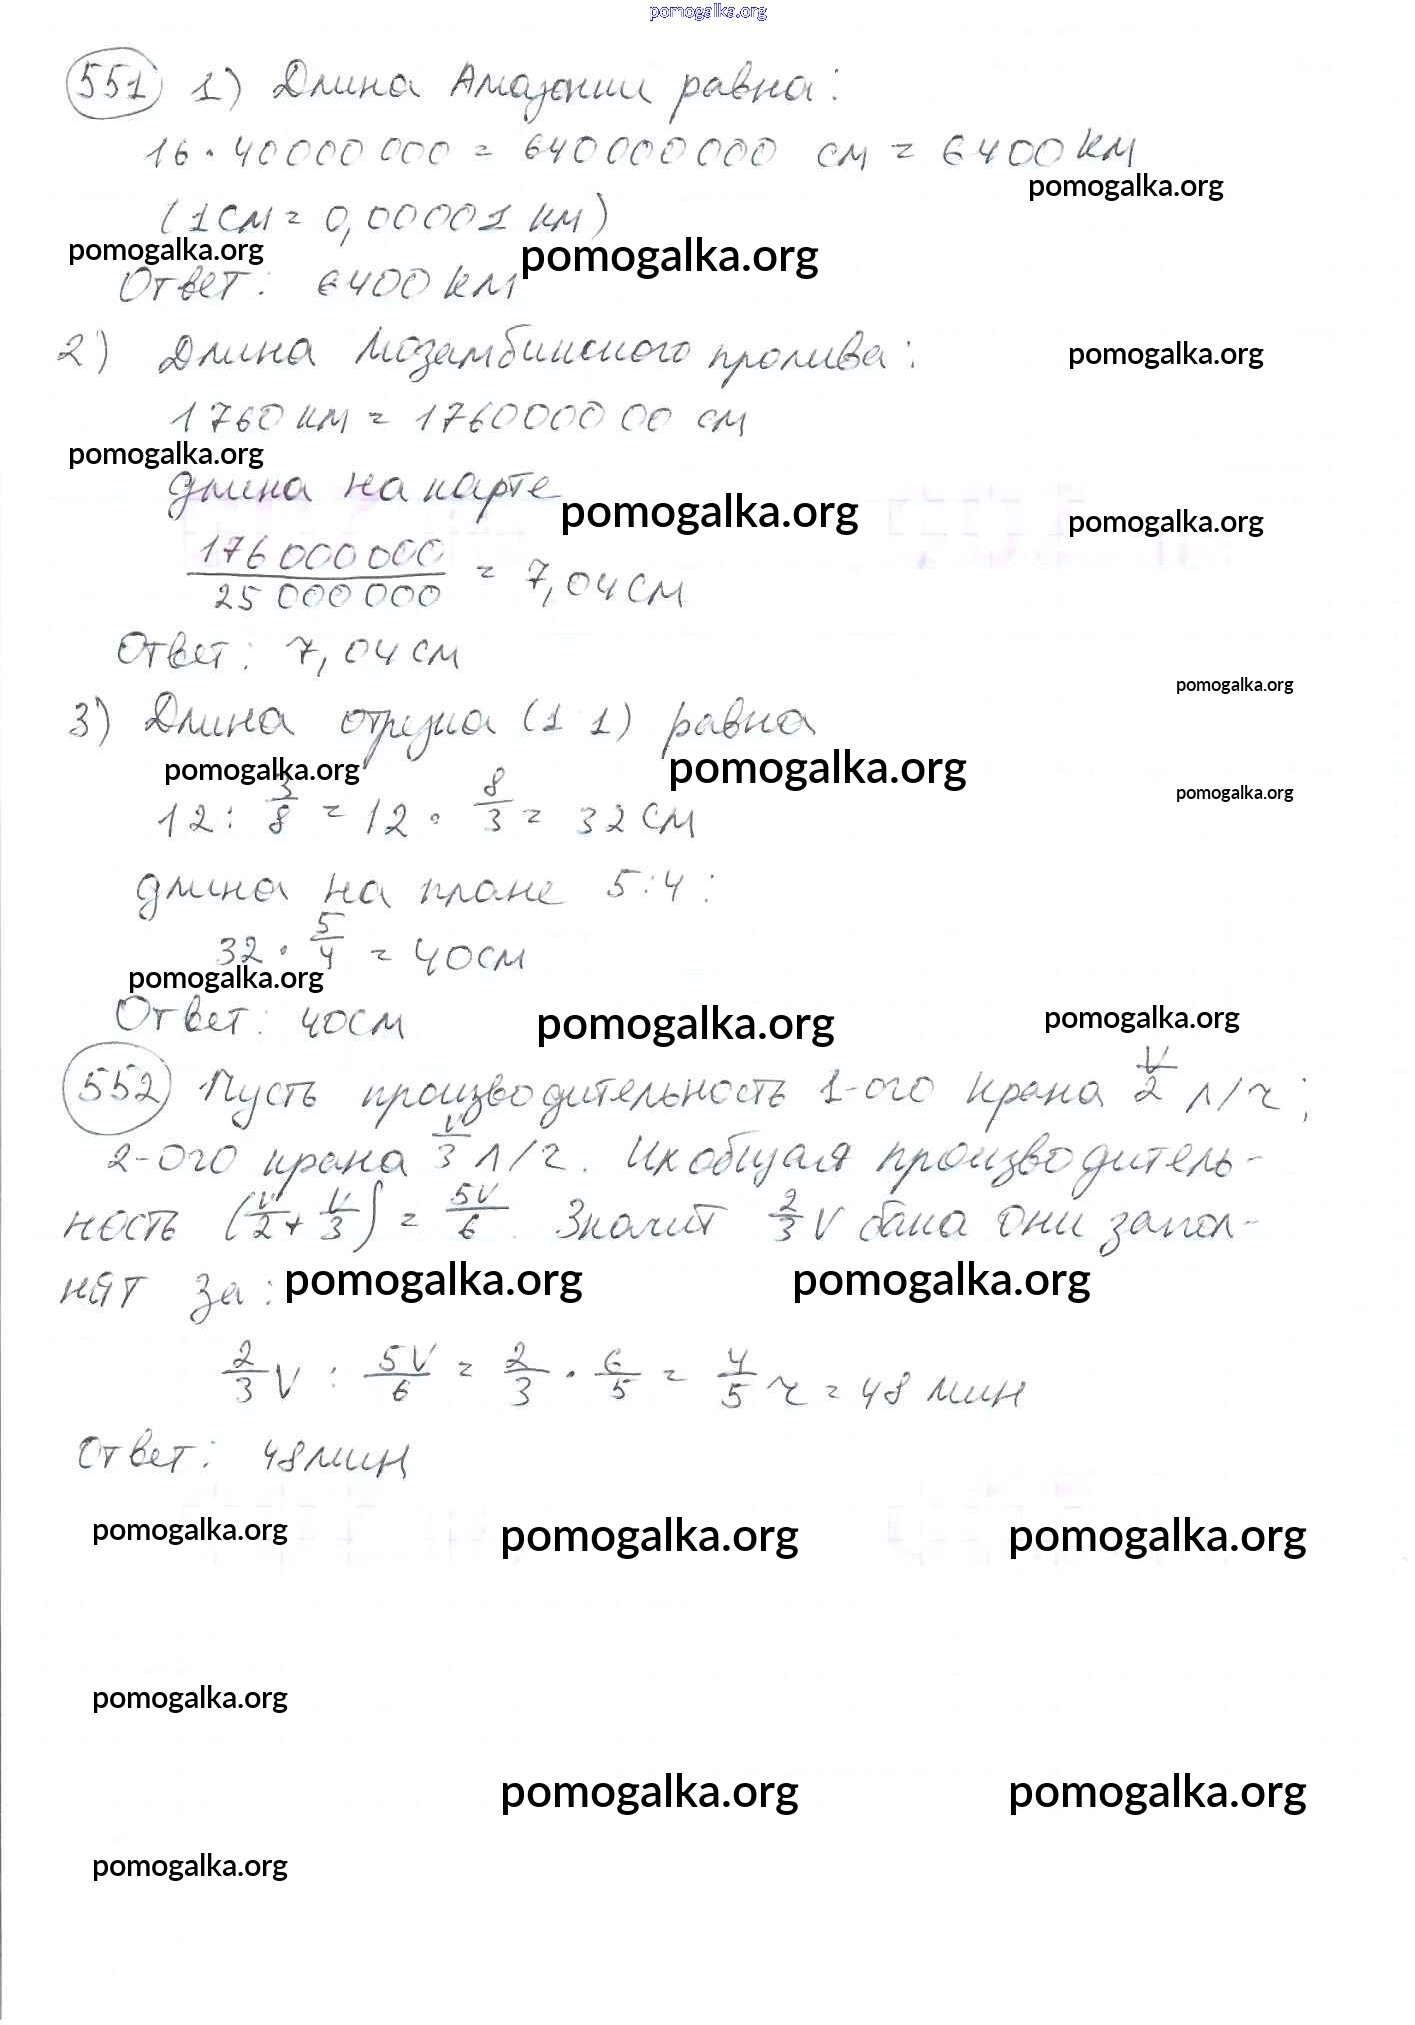 pomogalka.org
551 1) Длина Амазонки равна:
16 · 40000 000 = 640000000 см = 6400 км
pomogalka.org
(1см = 0,00001 км)
pomogalka.org pomogalka.org
Ответ: 6400 км
2) Длина Мозамбикского пролива:
pomogalka.org
1760 км = 1760000 00 см
pomogalka.org
длина на карте
pomogalka.org pomogalka.org
176 000 000 / 25 000 000 = 7,04 см
Ответ: 7,04 см
pomogalka.org
3) Длина отрезка (1 1) равна
pomogalka.org pomogalka.org
pomogalka.org
12 : 3/8 = 12 · 8/3 = 32 см
длина на плане 5:4:
32 · 5/4 = 40см
pomogalka.org
Ответ: 40см pomogalka.org pomogalka.org
552 Пусть производительность 1-ого крана V/2 л/ч;
2-ого крана V/3 л/ч. Их общая производитель-
ность (V/2 + V/3) = 5V/6. Значит 2/3 V бака они запол-
нят за: pomogalka.org pomogalka.org
2/3 V : 5V/6 = 2/3 · 6/5 = 4/5 ч = 48 мин
Ответ: 48мин
pomogalka.org pomogalka.org pomogalka.org
pomogalka.org
pomogalka.org pomogalka.org
pomogalka.org